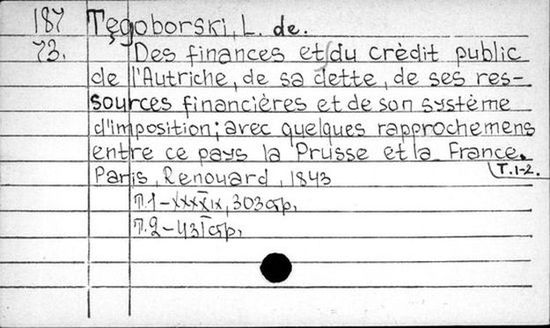 187 Tęgoborski, L. de.
73. Des finances et du crèdit public
de l'Autriche, de sa dette, de ses res-
sources financières et de son système
d'imposition; avec quelques rapprochemens
entre ce pays la Prusse et la France.
Paris, Renouard, 1843 T.1-2.
T.1-XXXIX, 303стр.
T.2-431стр.